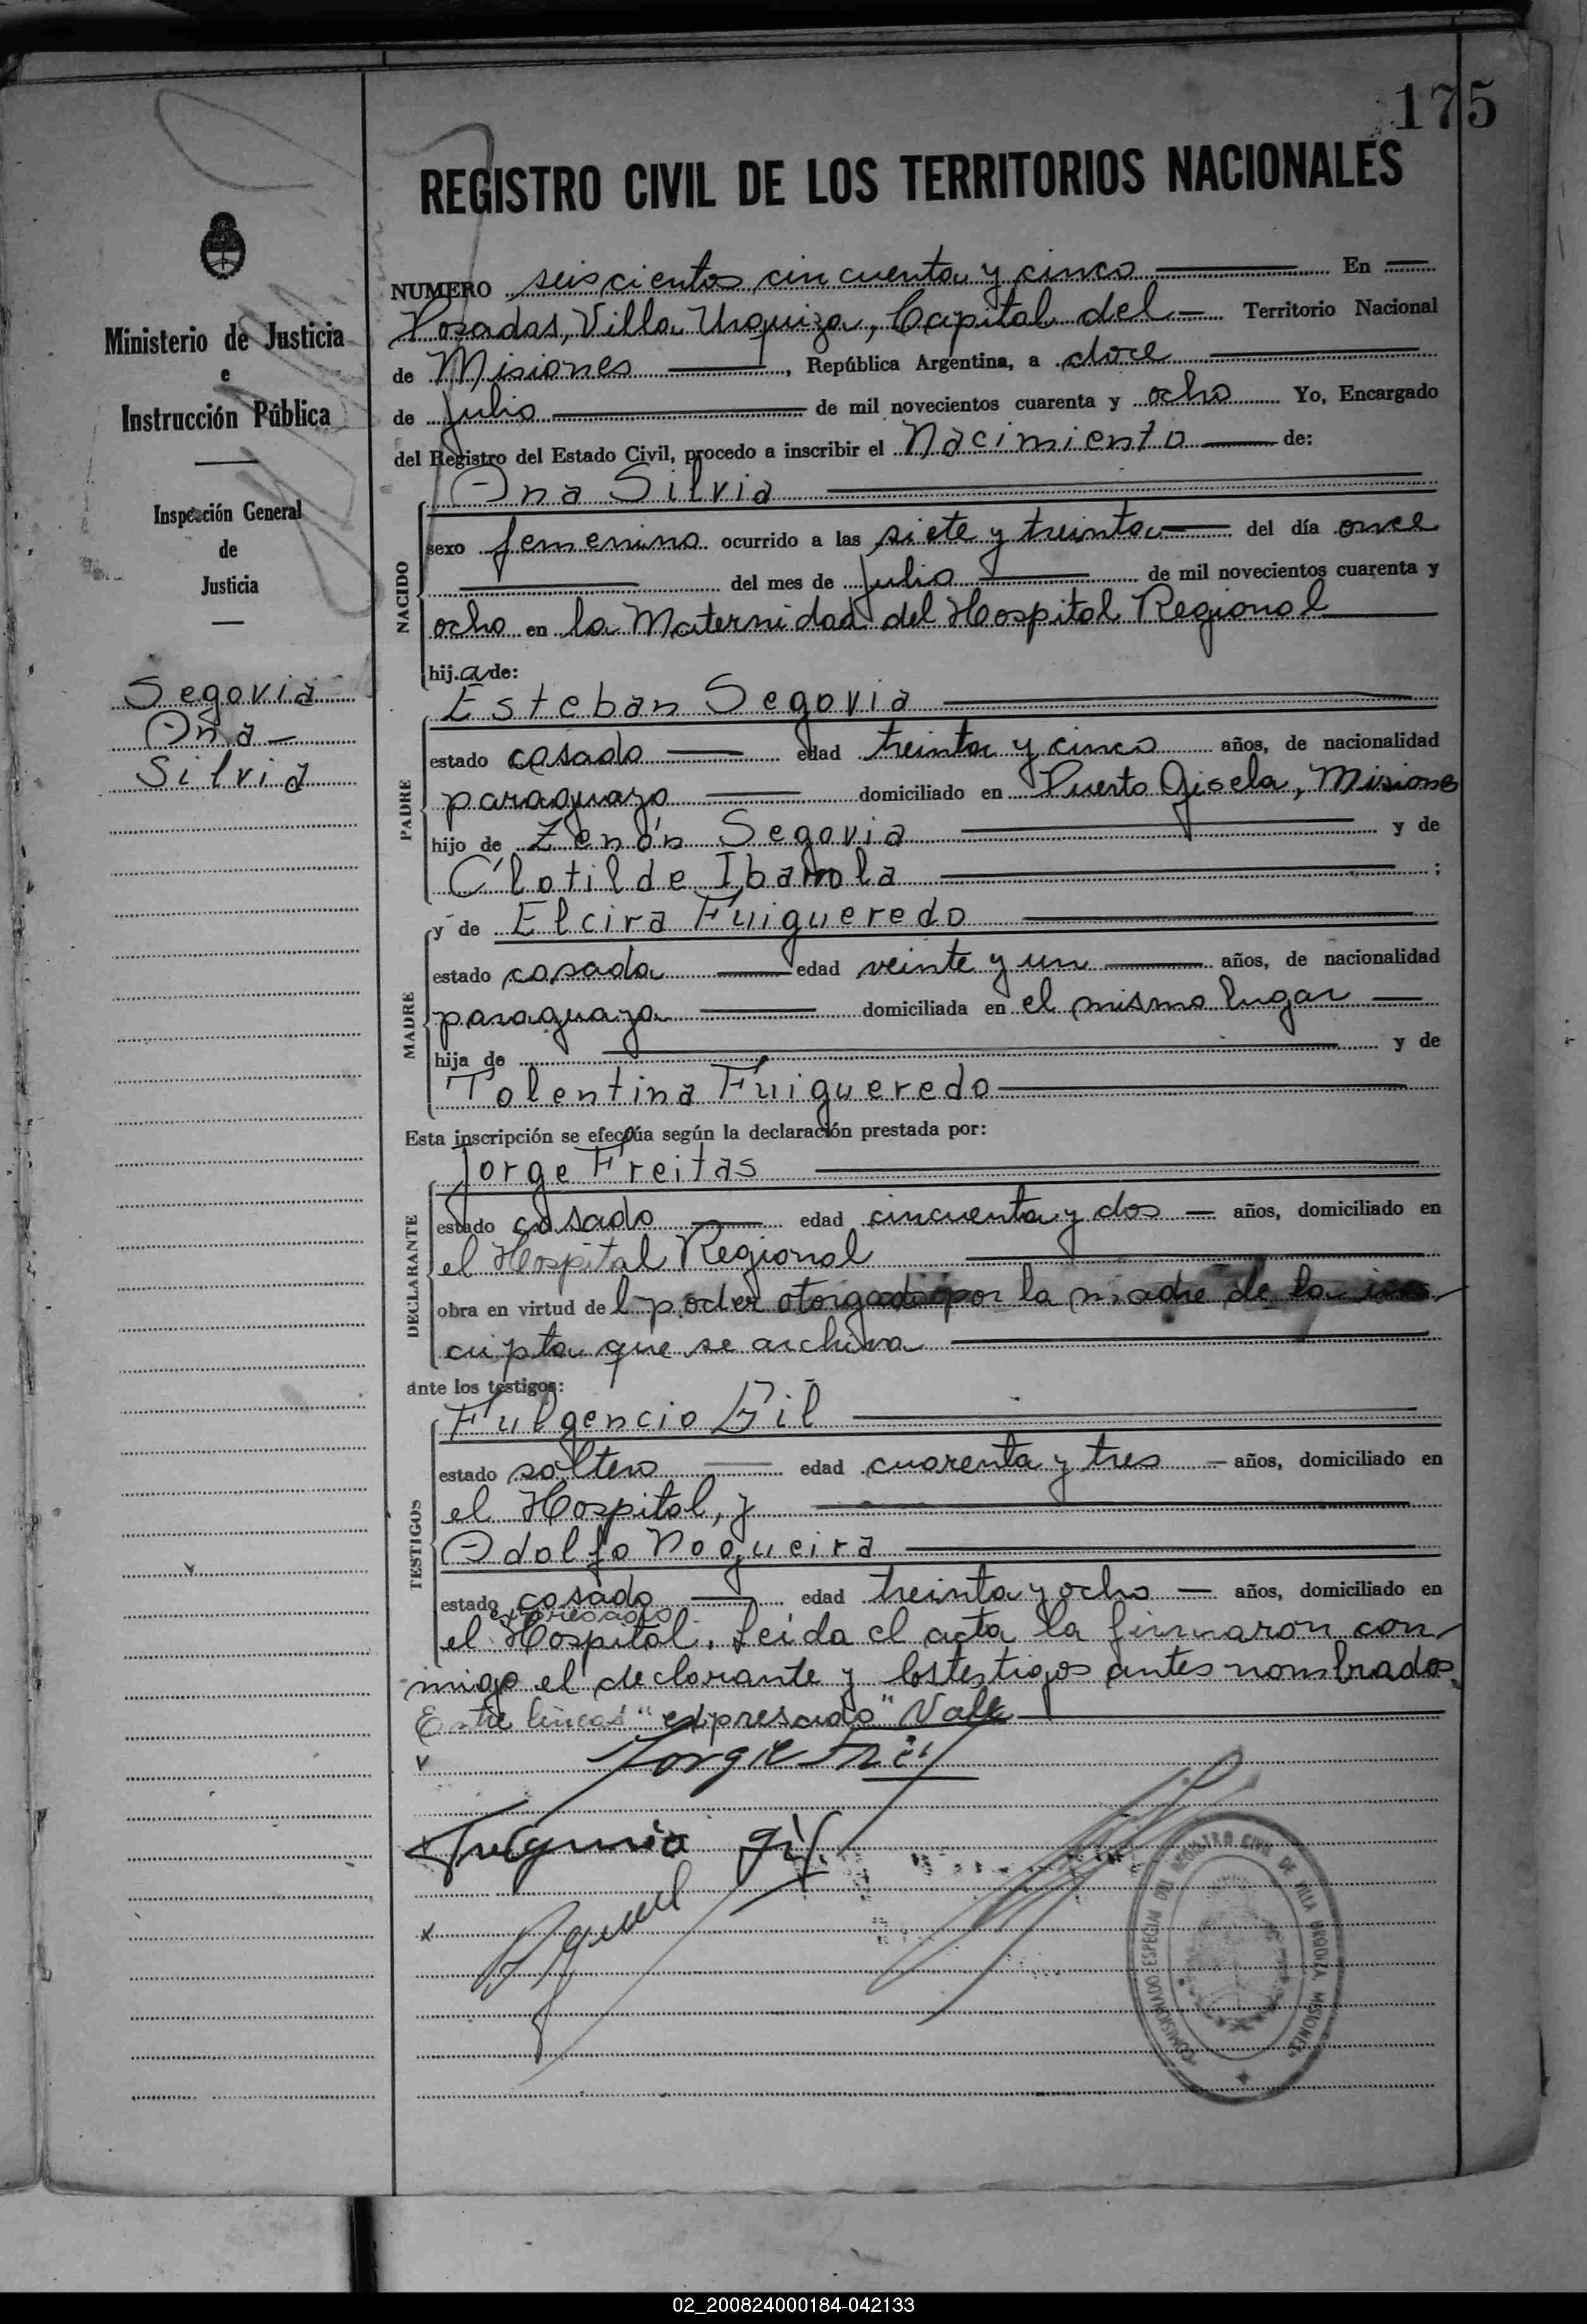 175
REGISTRO CIVIL DE LOS TERRITORIOS NACIONALES
Ministerio de Justicia
e
Instrucción Pública
Inspección General
de
Justicia
Segovia
Ana
Silvia
NUMERO seiscientos cincuenta y cinco En
Posadas, Villa Urquiza, Capital del Territorio Nacional
de Misiones, República Argentina, a doce
de Julio de mil novecientos cuarenta y ocho Yo, Encargado
del Registro del Estado Civil, procedo a inscribir el Nacimiento de:
NACIDO
Ana Silvia
sexo femenino ocurrido a las siete y treinta del día once
del mes de Julio de mil novecientos cuarenta y
ocho en la Maternidad del Hospital Regional
hij.a de:
PADRE
Esteban Segovia
estado casado edad treinta y cinco años, de nacionalidad
paraguayo domiciliado en Puerto Gisela, Misiones
hijo de Zenón Segovia y de
Clotilde Ibarrola;
MADRE
y de Elcira Fuigueredo
estado casada edad veinte y un años, de nacionalidad
paraguaya domiciliada en el mismo lugar
hija de y de
Tolentina Fuigueredo
Esta inscripción se efectúa según la declaración prestada por:
DECLARANTE
Jorge Freitas
estado casado edad cincuenta y dos años, domiciliado en
el Hospital Regional
obra en virtud del poder otorgado por la madre de la ins
cripta que se archiva
ante los testigos:
TESTIGOS
Fulgencio Gil
estado soltero edad cuarenta y tres años, domiciliado en
el Hospital, y
Adolfo Nogueira
estado casado edad treinta y ocho años, domiciliado en
expresado
el Hospital. Leída el acta la firmaron con
migo el declarante y los testigos antes nombrados.
Entre lineas "expresado" Vale
Jorge
Fulgencio Gil
COMISIONADO ESPECIAL DEL REGISTRO CIVIL DE VILLA URQUIZA MISIONES
02_200824000184-042133